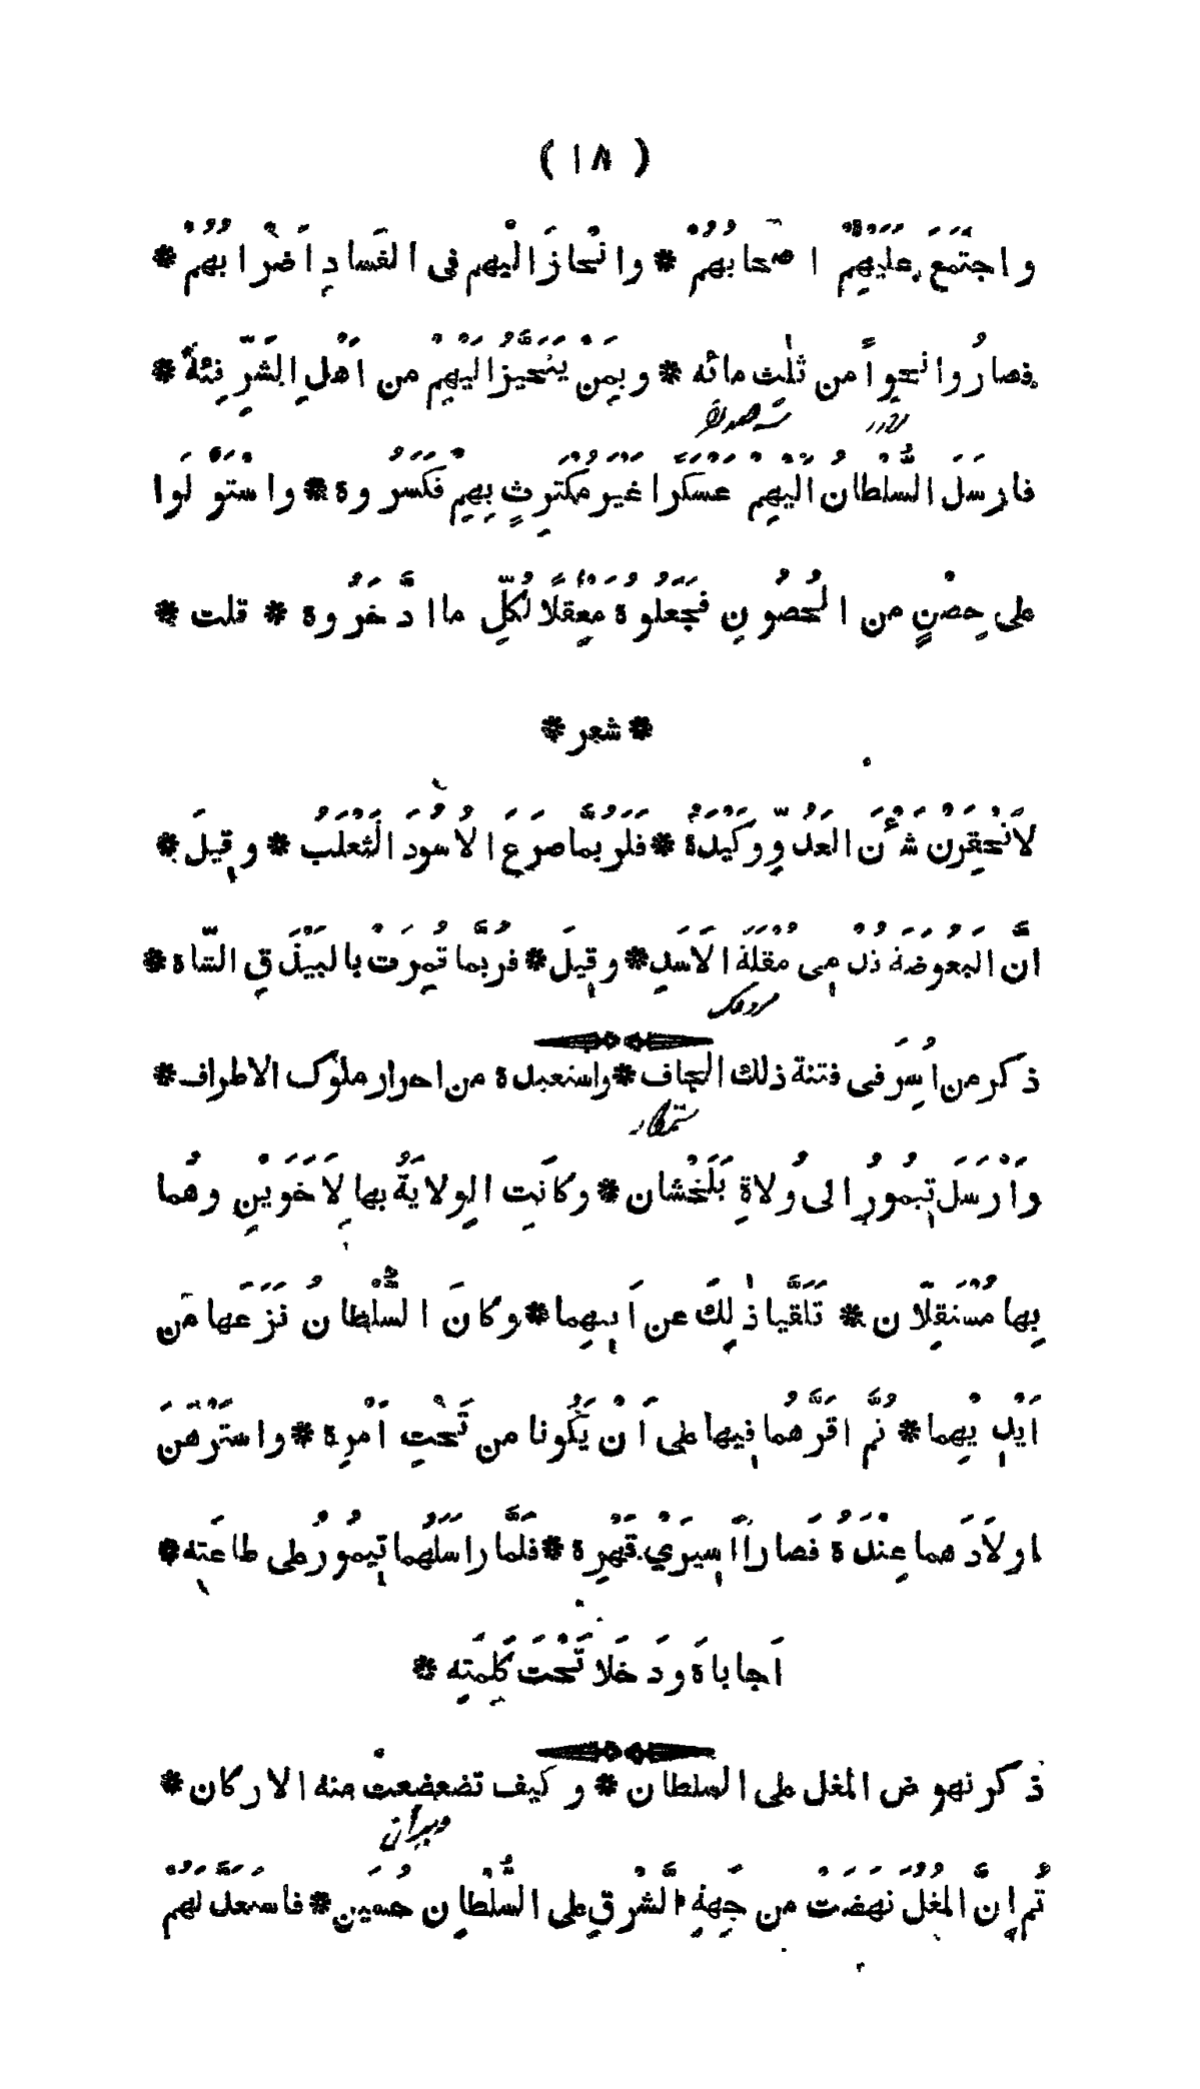 ( ١٨ )
واجتَمَعَ عَلَيْهِمْ اَصحابُهُمْ * وانْحازَ الَيْهِم فى الفَسادِ اَضْرابُهُمْ *
فصارُوا نحواً من ثلٰثِ مائه * وبِمَنْ يَنْحَيزُ اليَهْمِ من اَهْلِ الشَّرِّ فِئةٌ *
فارسَلَ السُّلْطانُ الَيْهِمْ عَسْكَرا غَيْرَ مُكْتَرِثٍ بِهِمْ فَكَسَرُوهُ * واسْتَوْلَوا
على حِصْنٍ من الحُصُونِ فَجَعَلُوهُ مَعْقِلاً لكُلِّ ما ادَّخَرُوهُ * قلت *
* شعر *
لاَتَحْقِرَنْ شَأْنَ العَدُوِّ وكَيْدَهُ * فلَرُبَّما صَرَعَ الاُسُودَ الثَعْلَبُ * وقِيلَ *
انَّ البَعُوضَةَ تُدْمِى مُقْلَةَ الاَسَدِ * وقِيلَ * فرُبَّما قُمِرَتْ بالبَيْذَقِ الشّاة *
ذكر من اُسِرَ فى فتنة ذلك الجاف * واستعبده من احرار ملوك الاطراف *
ستمكار
وَاَرْسَلَ تِيمُورُ الى وُلاةِ بَلَخْشان * وكانَتِ الوِلايَةُ بها لِاَخَوَيْنِ وهُما
بِها مُسْتَقِلّان * تَلَقَّيا ذٰلِكَ عن اَبِيهِما * وكانَ السُّلْطانُ نَزَعَها مَن
اَيْدِيْهِما * ثُمَّ اقَرَّهُما فِيها على اَنْ يَكُونا من تَحْتِ اَمْرِه * واسْتَرْهَنَ
اولاَدَهما عِنْدَهُ فَصارا اَسِيرَيْ قَهْرِه * فَلَمَّا راسَلَهُما تِيمُورُ على طاعَتِه *
اَجاباهُ ودَخَلاَ تَحْتَ كَلِمَتِه *
ذكر نهوض المغل على السلطان * وكيف تضعضعت منه الاركان *
ويران
ثُم اِنَّ المُغُلَ نَهَضَتْ من جِهَةِ الشَّرْقِ على السُّلْطانِ حُسَين * فاستعَدَّ لَهُمْ